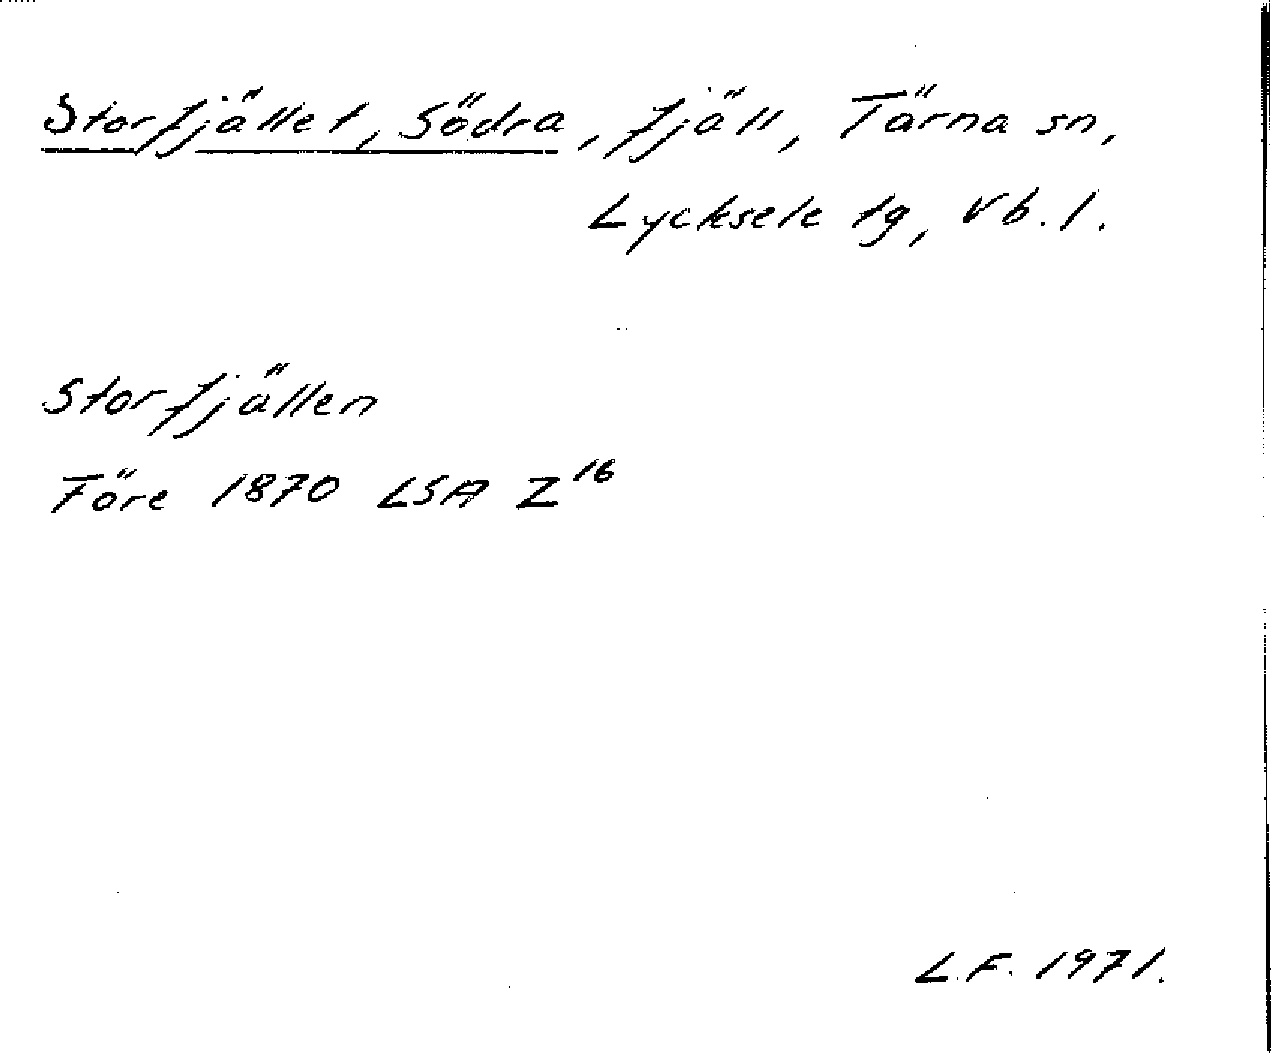 Storfjället, Södra, fjäll, Tärna sn,
Lycksele tg, Vb. l.
Storfjällen
Före 1870 LSA Z¹⁶
L.F. 1971.